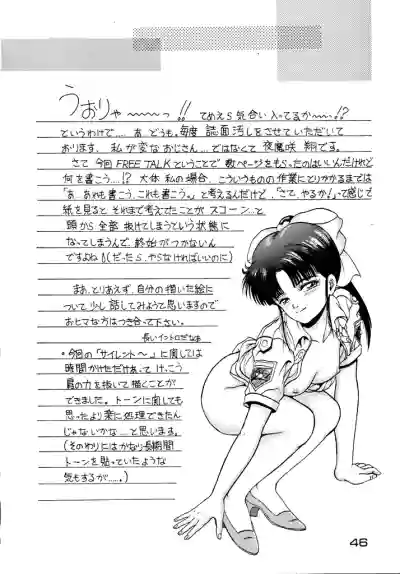 うおりゃ〜〜〜っ!! てめえら気合い入ってるか〜…!?
というわけで…… あ どうも。毎度 誌面汚しをさせていただいて
おります、私が変なおじさん…ではなくて 夜魔咲 翔です。
さて 今回 FREE TALK ということで 数ページをもらったのはいいんだけれど
何を書こう…!? 大体 私の場合、こういうものの 作業にとりかかるまでは
「あ あれも書こう、これも書こう。」と考えるんだけど、「さて、やるか!」って感じで
紙を見ると それまで考えてたことが スコーンっと
頭から 全部 抜けてしまうという状態に
なってしまうんで、終始がつかないん
ですよね (だったら、やらなければいいのに)
まあ、とりあえず、自分の描いた絵に
ついて少し話してみようと思いますので
おヒマな方はつき合って下さい。
長いイントロだなぁ
・今回の「サイレント〜」に関しては
時間かけただけあって、けっこう
肩の力を抜いて描くことが
できました。トーンに関しても
思ったより楽に処理できたん
じゃないかな…と思います。
(そのわりにはかなり長期間
トーンを貼っていたような
気もするが……。)
46